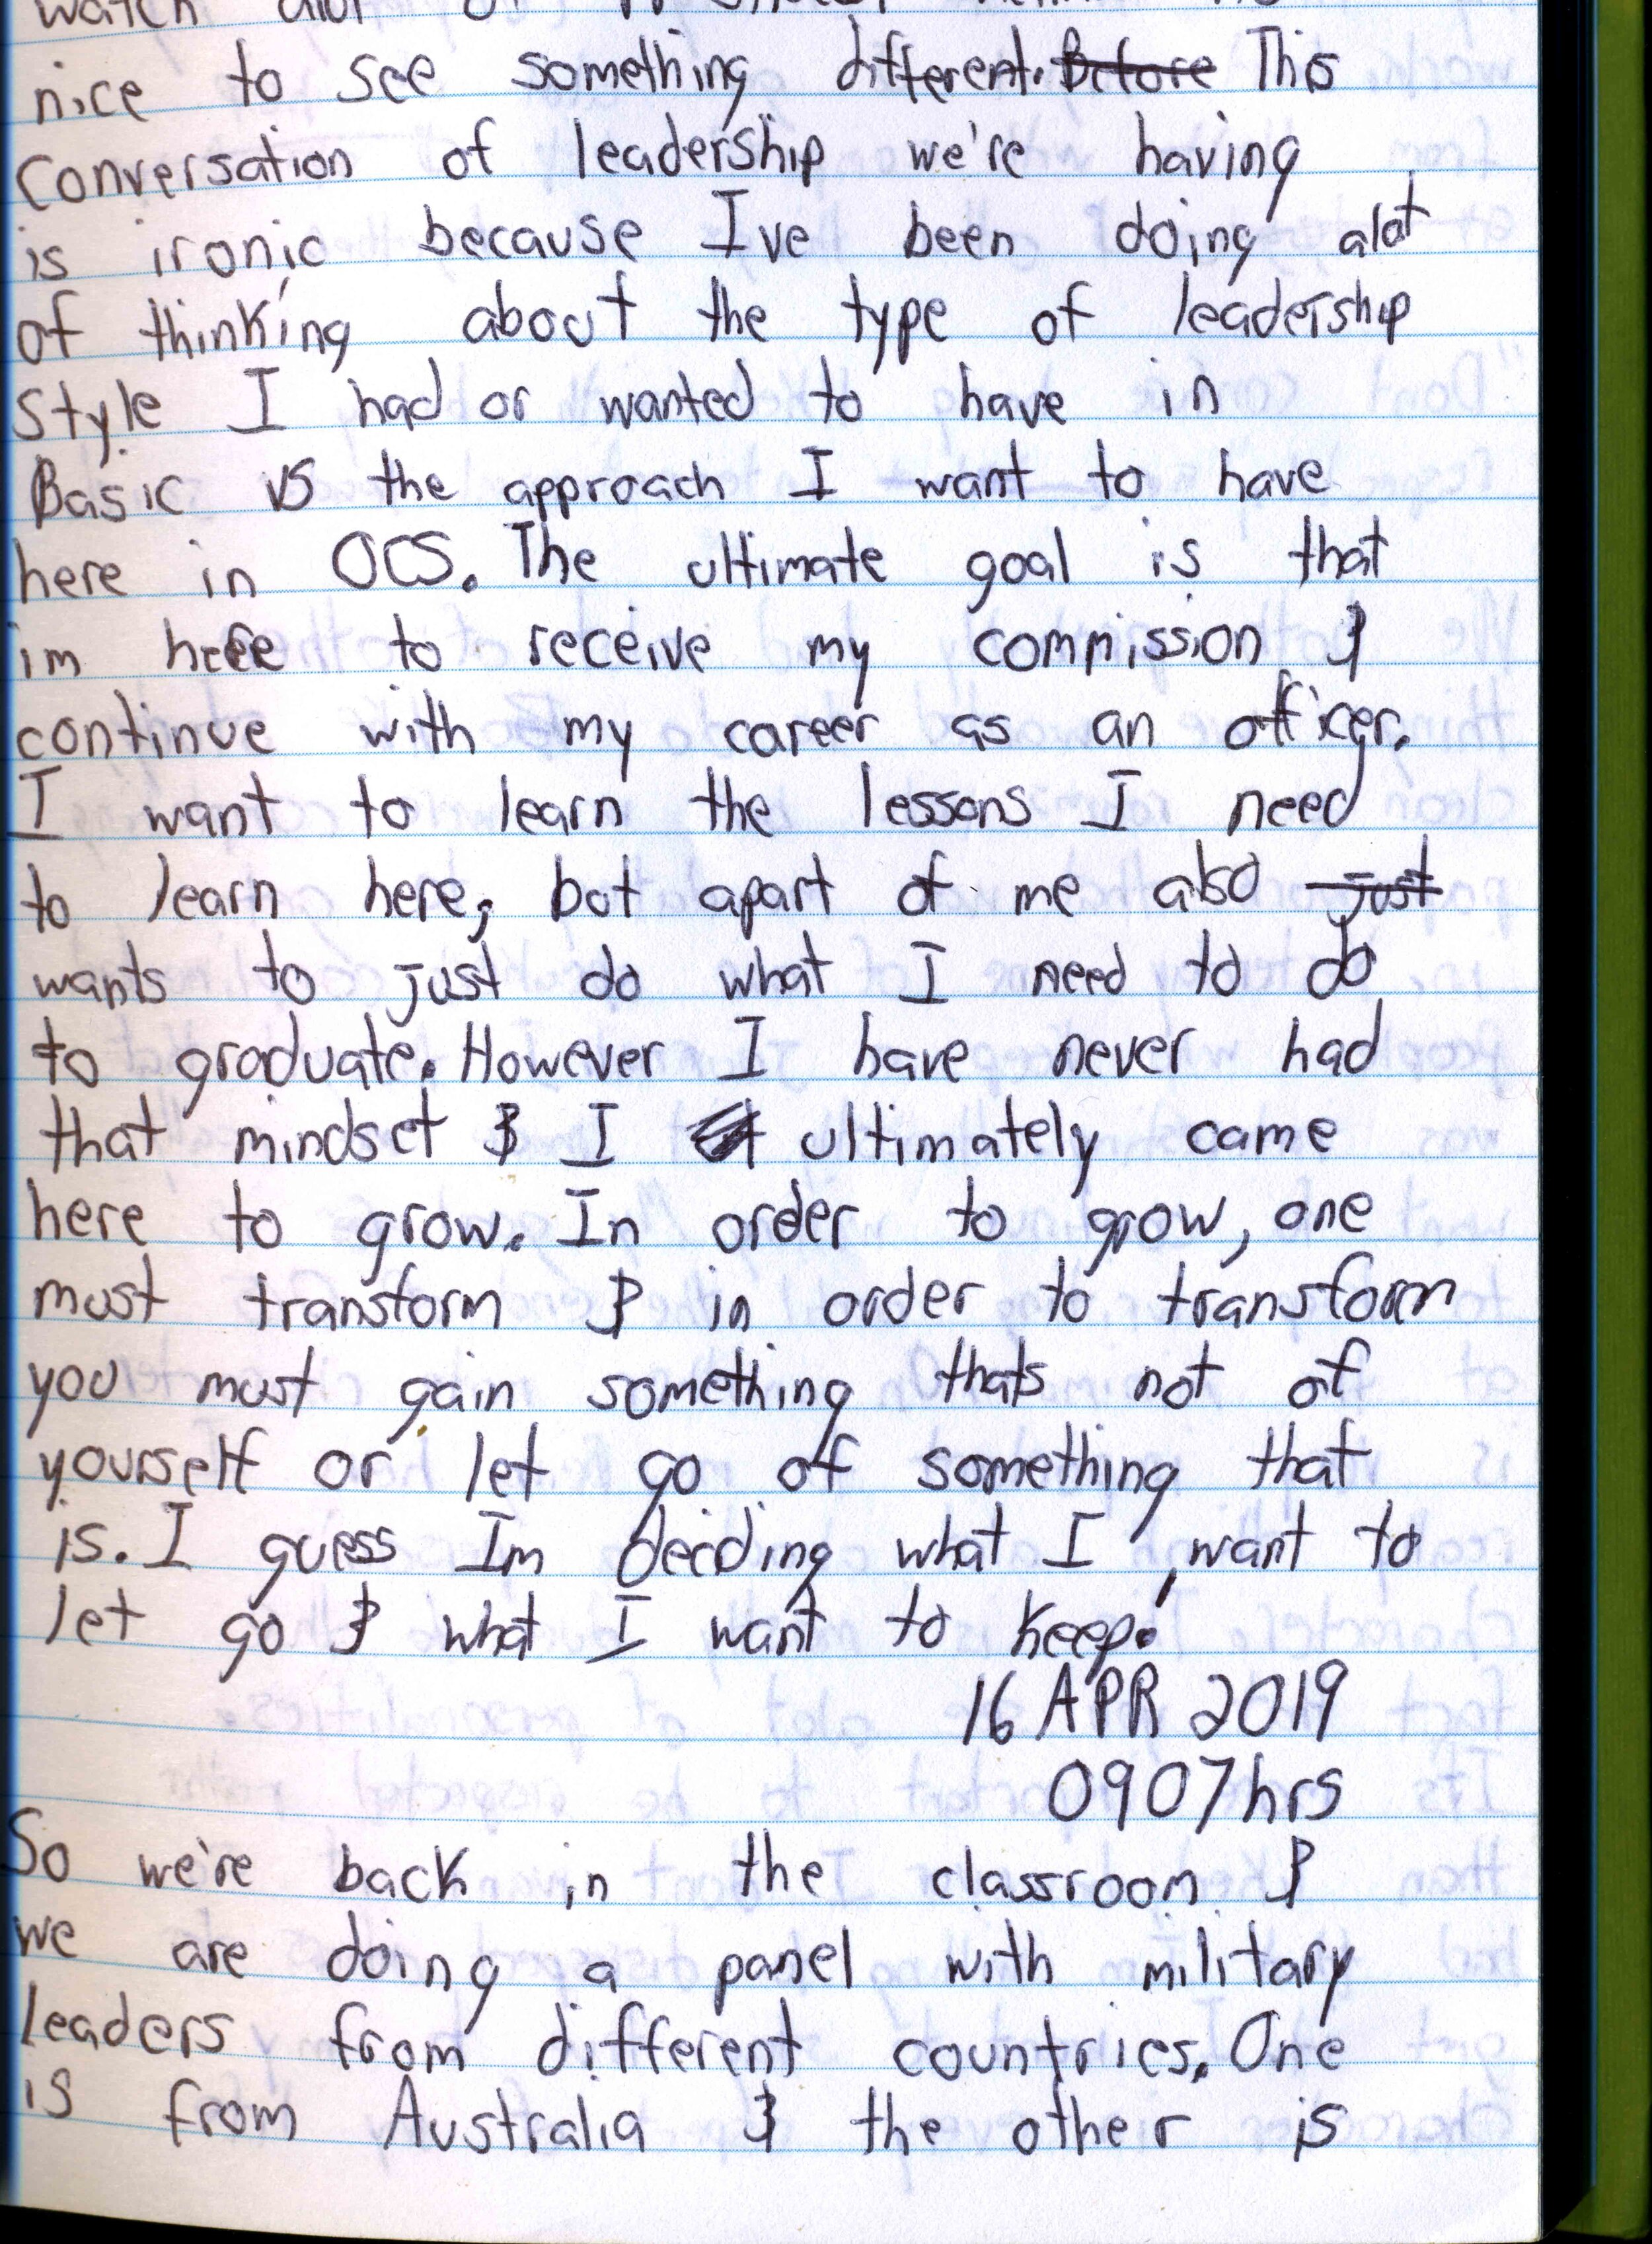 watch alot of
nice to see something different. Before This
conversation of leadership we're having
is ironic because I've been doing alot
of thinking about the type of leadership
style I had or wanted to have in
Basic vs the approach I want to have
here in OCS. The ultimate goal is that
im here to receive my commission &
continue with my career as an officer.
I want to learn the lessons I need
to learn here, but apart of me also just
wants to just do what I need to do
to graduate. However I have never had
that mindset & I ultimately came
here to grow. In order to grow, one
must transform & in order to transform
you must gain something thats not of
yourself or let go of something that
is. I guess Im deciding what I want to
let go & what I want to keep!
16 APR 2019
0907hrs
So we're back in the classroom &
we are doing a panel with military
leaders from different countries. One
is from Australia & the other is